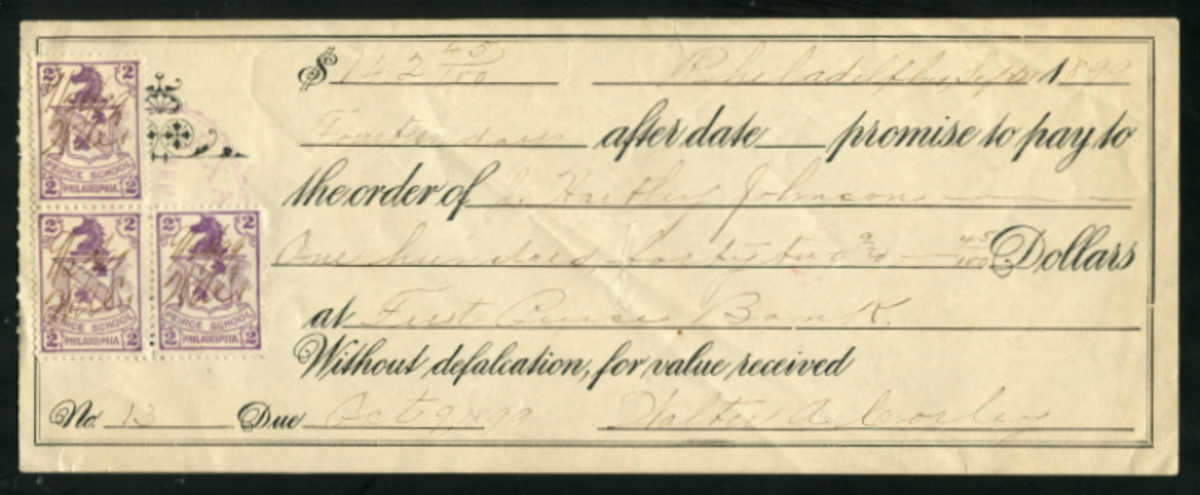 $ 142 45/100 Philadelphia, Sept 1899
Fourteen days after date promise to pay to
the order of J. Hartley Johnson
One hundred forty two and 45/100 Dollars
at First Peirce Bank.
Without defalcation, for value received
No. 13 Due Oct 9 1899 Walter A.
2 2
PEIRCE SCHOOL
2 PHILADELPHIA 2
2 2
PEIRCE SCHOOL
2 PHILADELPHIA 2
2 2
PEIRCE SCHOOL
2 PHILADELPHIA 2